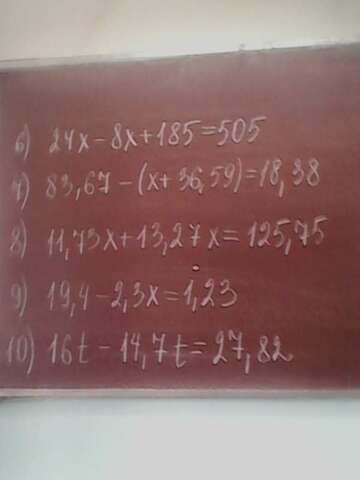 6) 24x-8x+185=505
7) 83,67-(x+36,59)=18,38
8) 11,73x+13,27x=125,75
9) 19,4-2,3x=1,23
10) 16t-14,7t=27,82